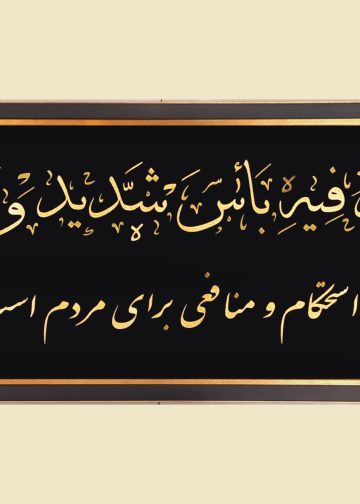 فِيهِ بَأسَ شَدَّيد وَ
استحکام و منافعی برای مردم است